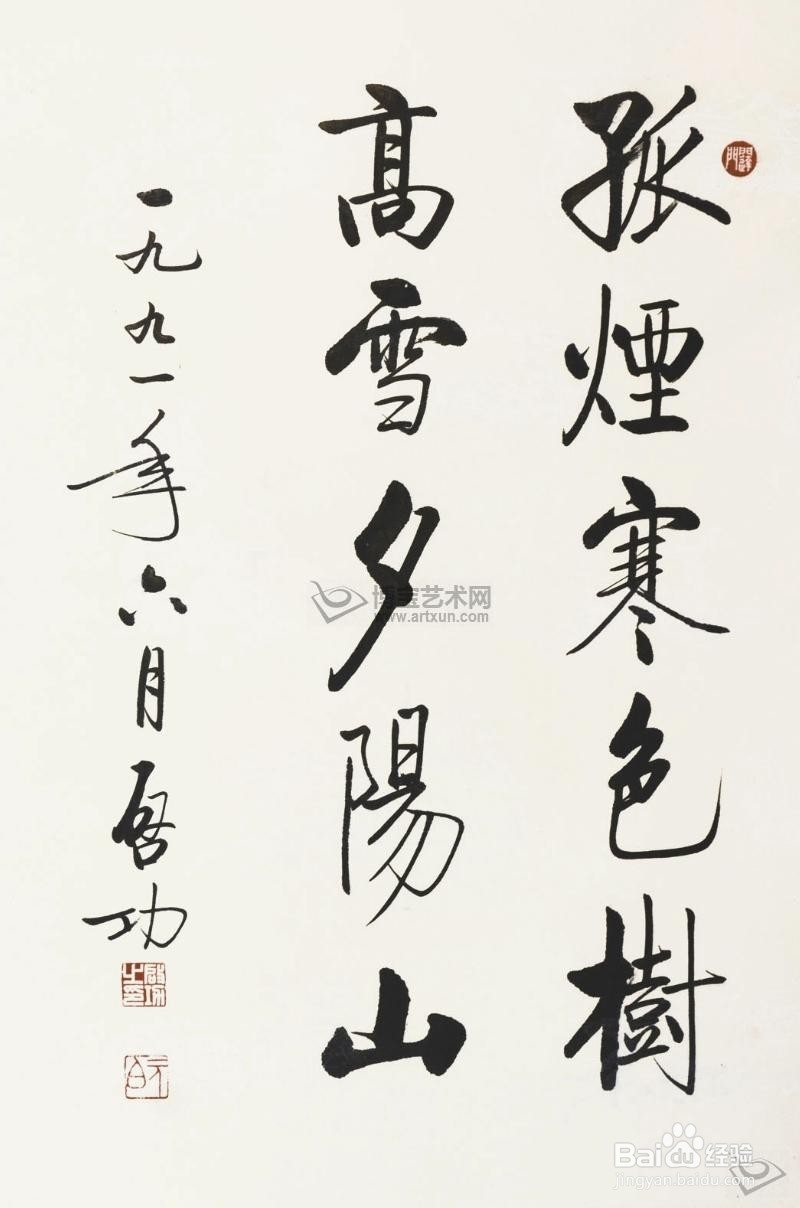 孤煙寒色樹
高雪夕陽山
一九九一年六月啓功
博宝艺术网
www.artxun.com
Baidu经验
jingyan.baidu.com